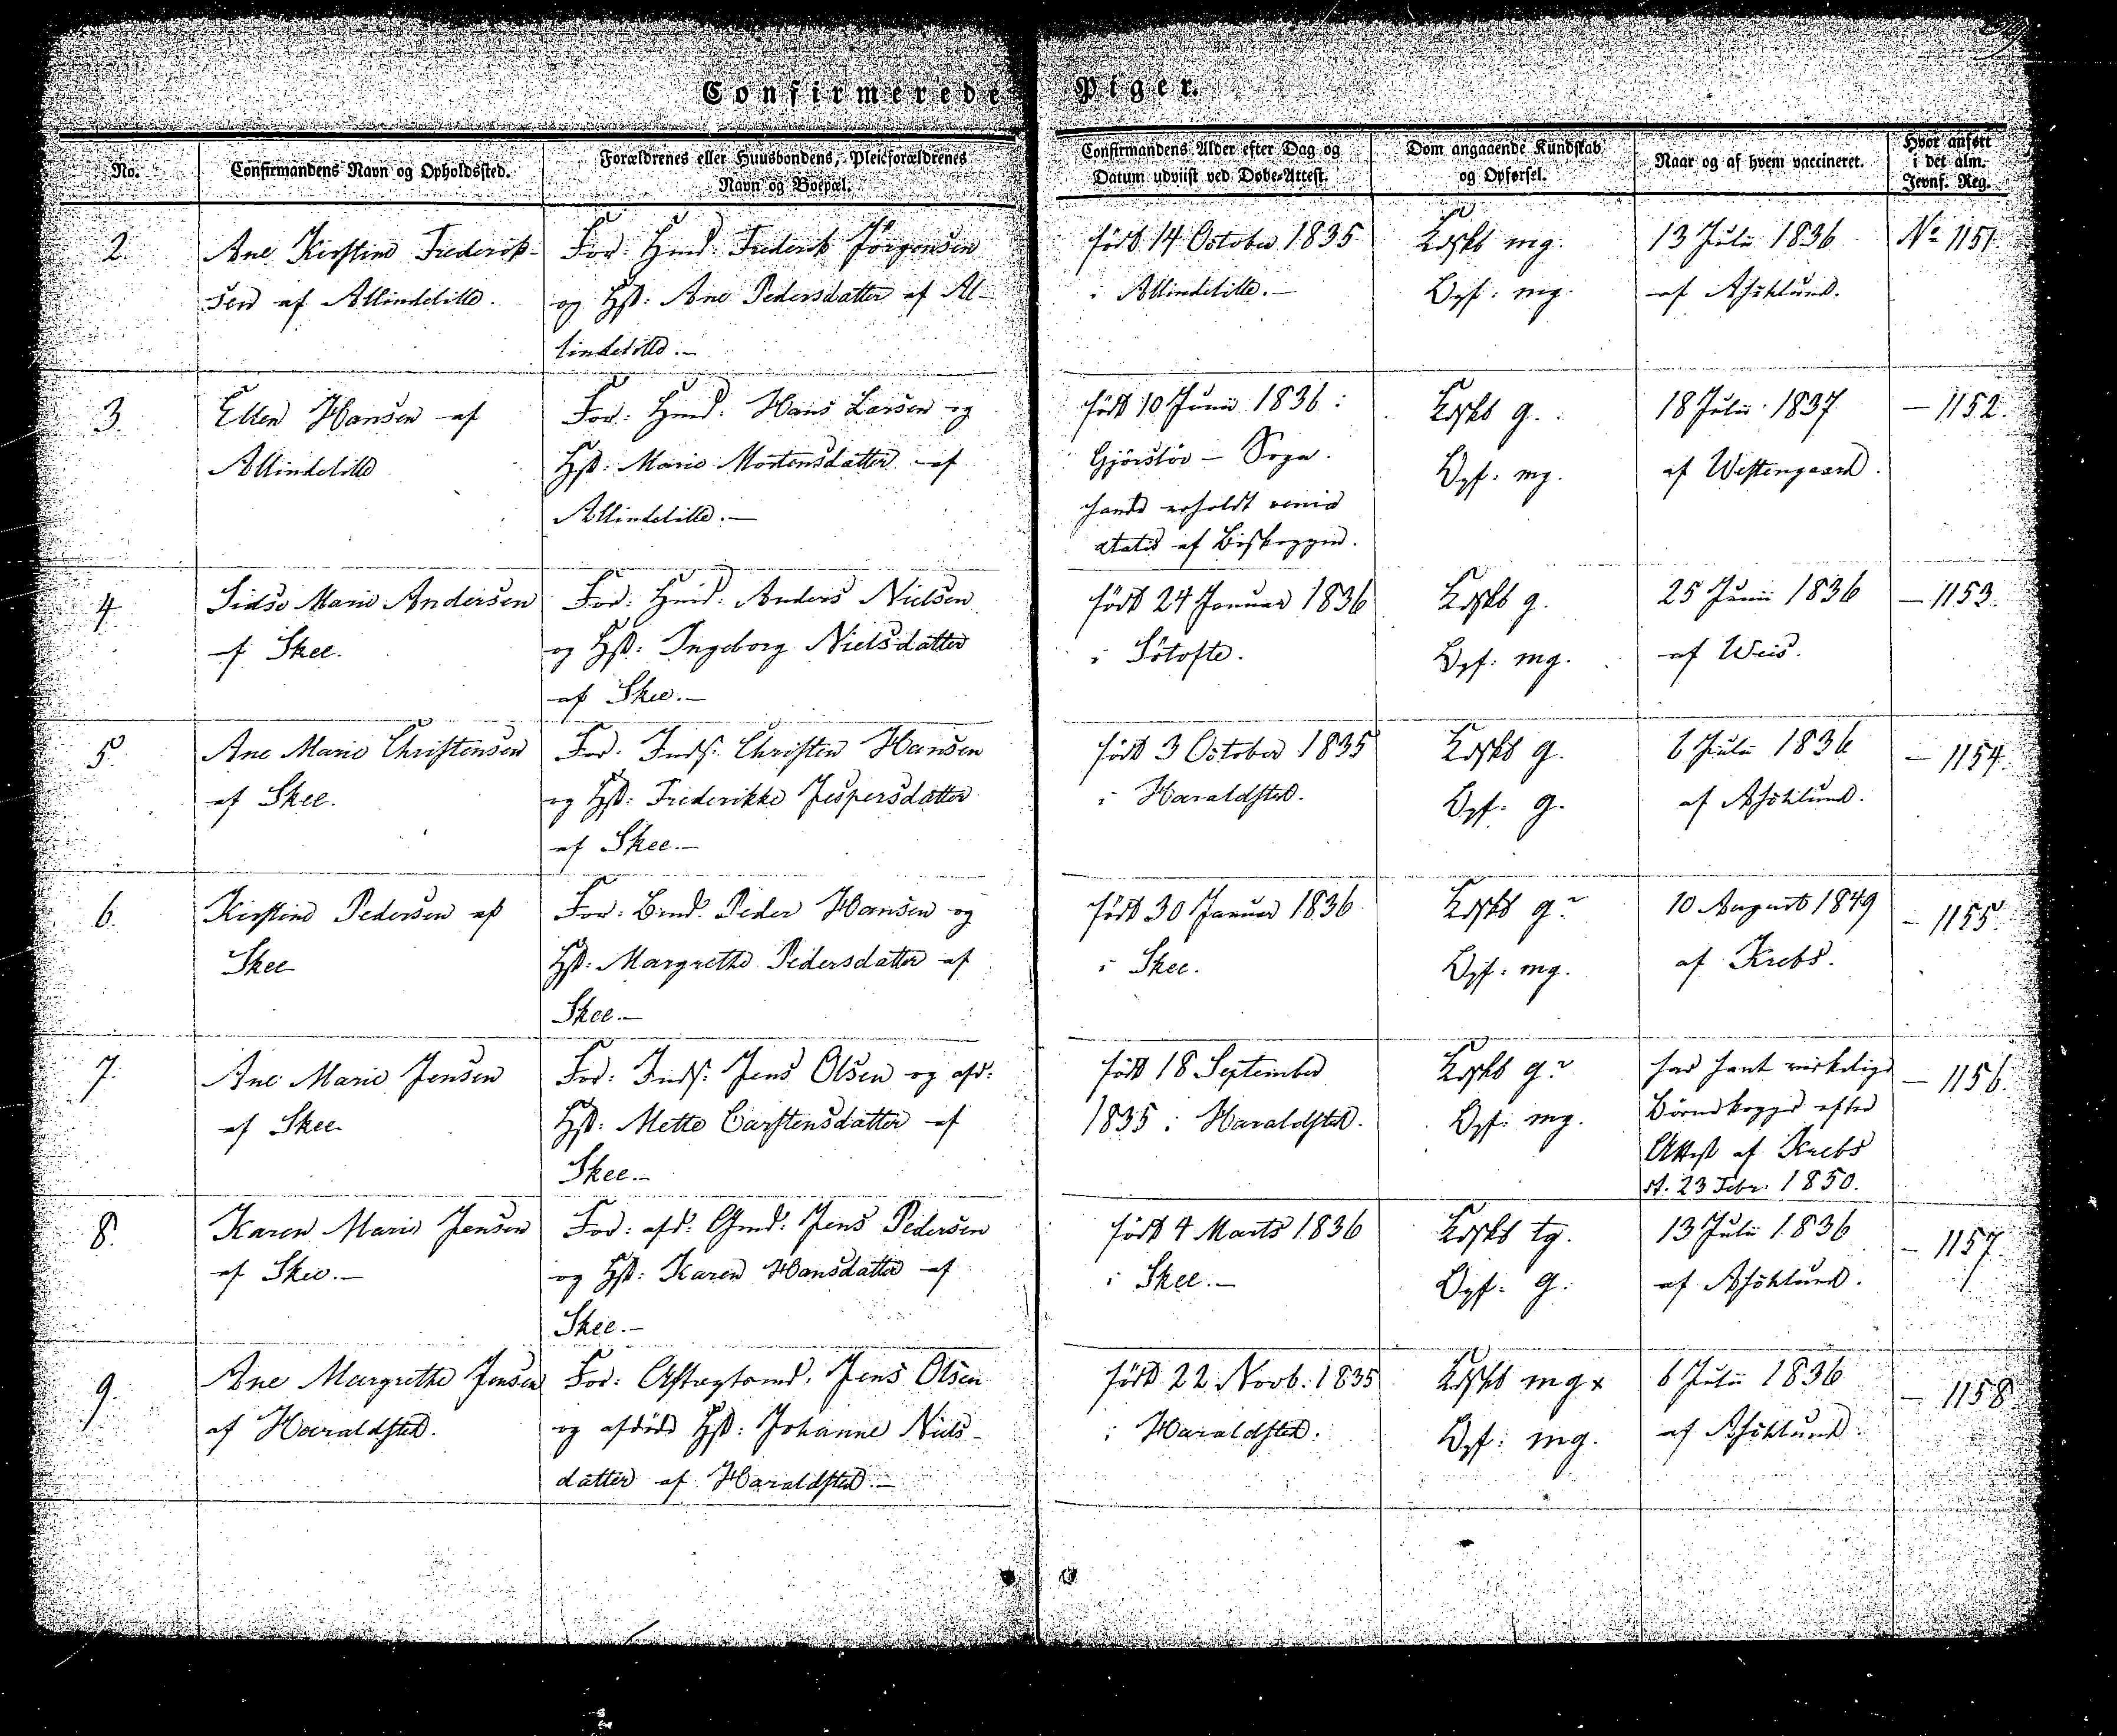 Confirmerede Piger.
No.
Confirmandens Navn og Opholdssted.
Forældrenes eller Huusbondens, Pleieforældrenes
Navn og Boepæl.
Confirmandens Alder efter Dag og
Datum udviist ved Døbe-Attest.
Dom angaaende Kundskab
og Opførsel.
Naar og af hvem vaccineret.
Hvor anført
i det alm.
Jevnf. Reg.
2.
Ane Kirstine Frederik-
sen af Allindelille.
For: Hmd: Frederik Jörgensen
og Hst: Ane Pedersdatter af Al-
lindelille.—
född 14 October 1835
i Allindelille.—
Kdskb mg.
Opf: mg.
13 Julii 1836
af
No 1151
3.
Ellen Hansen af
Allindelille
For: Hmd: Hans Larsen og
Hst: Marie Mortensdatter af
Allindelille.—
född 10 Junii 1836 i
Gjörslöv – Sogn.
havde erholdt venia
ætatis af Biskoppen.
Kdskb g.
Opf: mg.
18 Julii 1837
af Westengaard.
— 1152.
4.
Sidse Marie Andersen
af Skee.
For: Hmd: Anders Nielsen
og Hst: Ingeborg Nielsdatter
af Skee.—
född 24 Januar 1836
i Sötofte.
Kdskb g.
Opf: mg.
25 Junii 1836
af Weis.
— 1153.
5.
Ane Marie Christensen
af Skee.
For: Inds: Christen Hansen
og Hst: Frederikke Jespersdatter
af Skee.—
född 3 October 1835
i Haraldsted.
Kdskb g.
Opf: g.
6 Julii 1836
af
— 1154.
6.
Kirstine Pedersen af
Skee
For: Bmd: Peder Hansen og
Hst: Margrethe Pedersdatter af
Skee.—
född 30 Januar 1836
i Skee.
Kdskb g?
Opf: mg.
10 August 1849
af Krebs.
— 1155.
7.
Ane Marie Jensen
af Skee
For: Inds: Jens Olsen og afd:
Hst: Mette Carstensdatter af
Skee.—
född 18 September
1835 i Haraldsted.
Kdskb g?
Opf: mg.
har havt virkelige
Börnekopper efter
Attest af Krebs
dt. 23 Febr: 1850.
— 1156.
8.
Karen Marie Jensen
af Skee.—
For: afd: Gmd: Jens Pedersen
og Hst: Karen Hansdatter af
Skee.—
född 4 Marts 1836
i Skee.—
Kdskb tg.
Opf: g.
13 Julii 1836
af
— 1157.
9.
Ane Margrethe Jensen
af Haraldsted.
For: Aftægtsmd: Jens Olsen
og afdöde Hst: Johanne Niels-
datter af Haraldsted.—
född 22 Novb: 1835
i Haraldsted.
Kdskb mg x
Opf: mg.
6 Julii 1836
af
— 1158